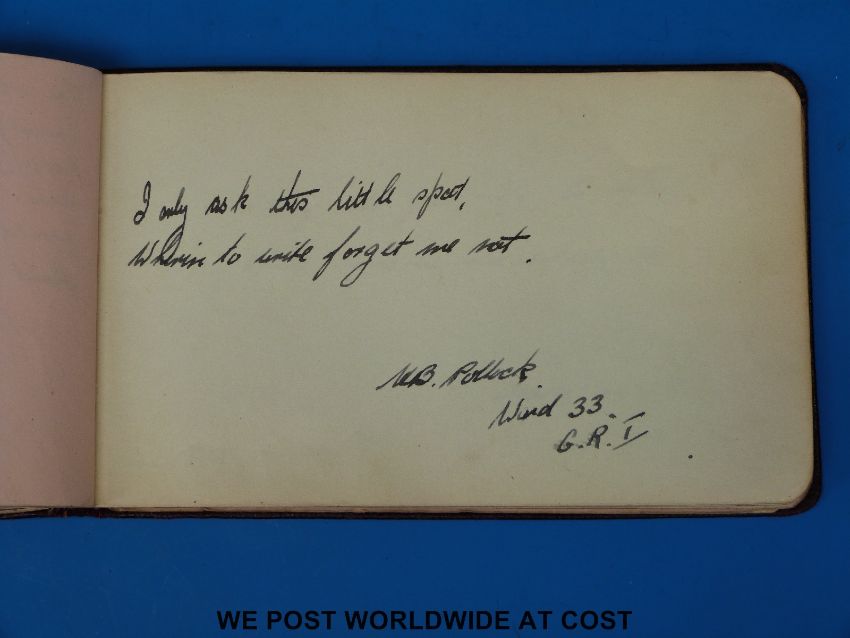 I only ask this little spot,
Wherin to write forget me not.
Pollock.
Ward 33.
G.R.I
WE POST WORLDWIDE AT COST